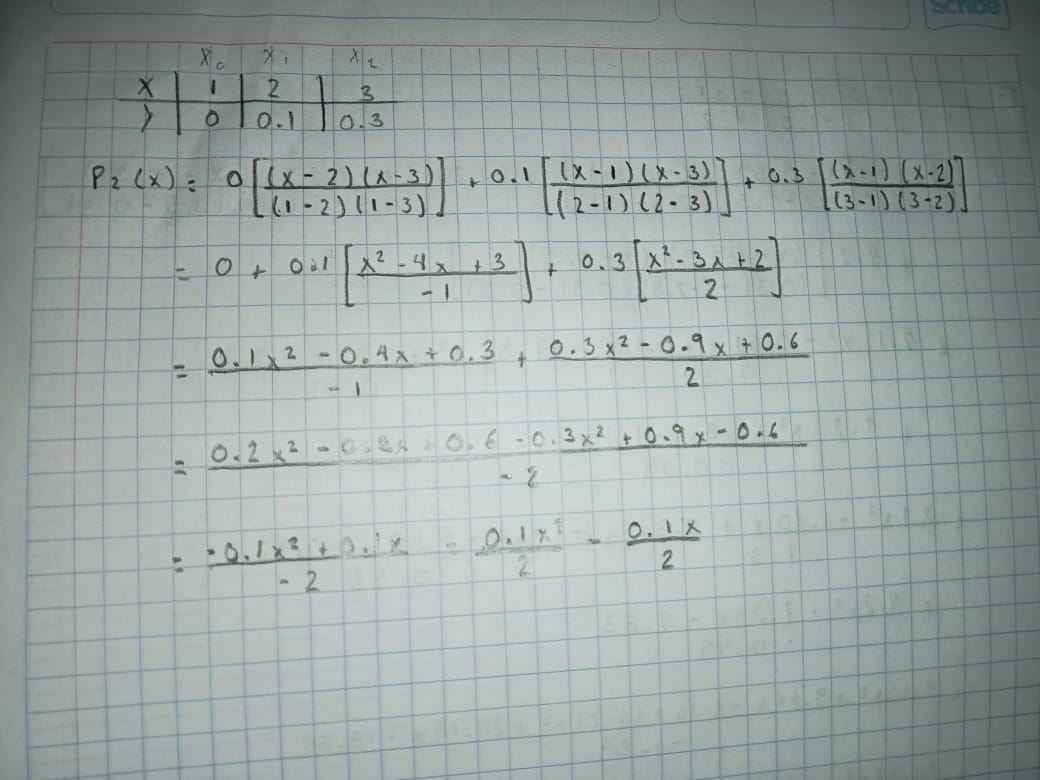 Scribe
x₀ x₁ x₂
x | 1 | 2 | 3
y | 0 | 0.1 | 0.3
P₂(x) = 0 [(x-2)(x-3) / (1-2)(1-3)] + 0.1 [(x-1)(x-3) / (2-1)(2-3)] + 0.3 [(x-1)(x-2) / (3-1)(3-2)]
= 0 + 0.1 [x² - 4x + 3 / -1] + 0.3 [x² - 3x + 2 / 2]
= 0.1x² - 0.4x + 0.3 / -1 + 0.3x² - 0.9x + 0.6 / 2
= 0.2x² - 0.8x + 0.6 - 0.3x² + 0.9x - 0.6 / -2
= -0.1x² + 0.1x / -2 = 0.1x² / 2 - 0.1x / 2